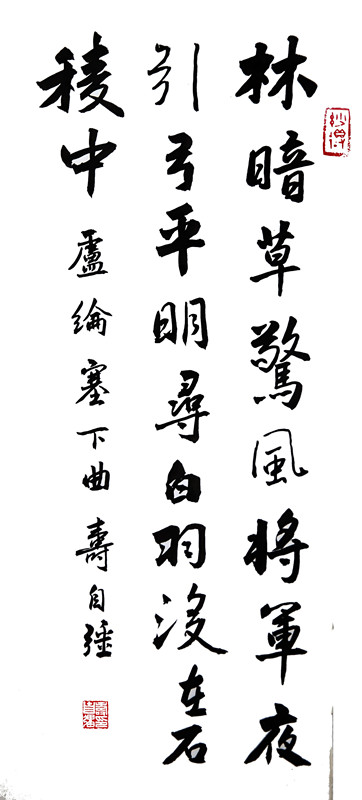 林暗草驚風將軍夜
引弓平明尋白羽没在石
稜中
盧綸塞下曲壽自強